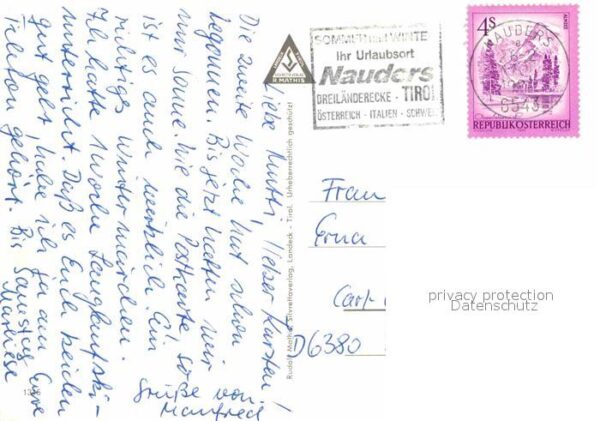 Liebe Mutti, lieber Karsten!
Die zweite Woche hat schon
begonnen. Bis jetzt hatten wir
nur Sonne. Wie die Postkarte so
ist es auch wirklich. Ein
richtiges Wintermärchen.
Ich hatte 1 Woche Langlaufski-
unterricht. Daß es Euch beiden
gut geht habe ich ja am
Telefon gehört. Bis Samstag Eure
Marliese
Grüße von
Manfred
1335
R. MATHIS
Rudolf Mathis, Silvrettaverlag, Landeck - Tirol. Urheberrechtlich geschützt!
SOMMER WINTE
Ihr Urlaubsort
Nauders
DREILÄNDERECKE - TIROL
ÖSTERREICH - ITALIEN - SCHWEI
4S
NAUDERS
6543
REPUBLIK ÖSTERREICH
Frau
Erna
Carl-
D6380
privacy protection
Datenschutz